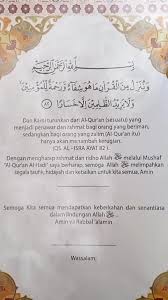 بِسْمِ اللَّهِ الرَّحْمَٰنِ الرَّحِيمِ
وَنُنَزِّلُ مِنَ الْقُرْآنِ مَا هُوَ شِفَاءٌ وَرَحْمَةٌ لِلْمُؤْمِنِينَ
وَلَا يَزِيدُ الظَّالِمِينَ إِلَّا خَسَارًا ٨٢
Dan Kami turunkan dari Al-Qur'an (sesuatu) yang
menjadi penawar dan rahmat bagi orang yang beriman,
sedangkan bagi orang yang zalim (Al-Qur'an itu)
hanya akan menambah kerugian.
(QS. AL-ISRA AYAT 82).
Dengan mengharap rahmat dan ridho Allah ﷻ melalui Mushaf
"Al-Qur'an Al-Hadi" saya berharap, semoga Allah ﷻ melimpahkan
segala taufik, hidayah dan ketaatan untuk kita semua, Amin
Semoga Kita semua mendapatkan keberkahan dan senantiasa
dalam lindungan Allah ﷻ
Amin ya Rabbal 'alamin
Wassalam,